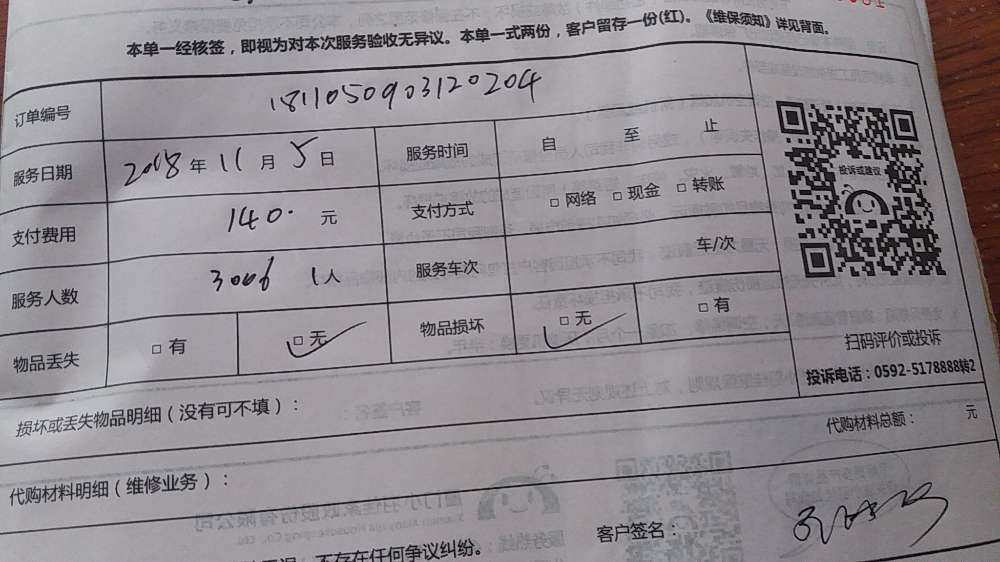 本单一经核签，即视为对本次服务验收无异议。本单一式两份，客户留存一份(红)。《维保须知》详见背面。
订单编号 1811050903120204
服务日期 2018年 11月 5日 服务时间 自 至 止
支付费用 140. 元 支付方式 □ 网络 □ 现金 □ 转账
服务人数 3006 1人 服务车次 车/次
物品丢失 □ 有 □ 无 物品损坏 □ 无 □ 有
投诉或建议
扫码评价或投诉
投诉电话：0592-5178888转2
损坏或丢失物品明细（没有可不填）：
代购材料明细（维修业务）： 代购材料总额： 元
客户签名：
不存在任何争议纠纷。